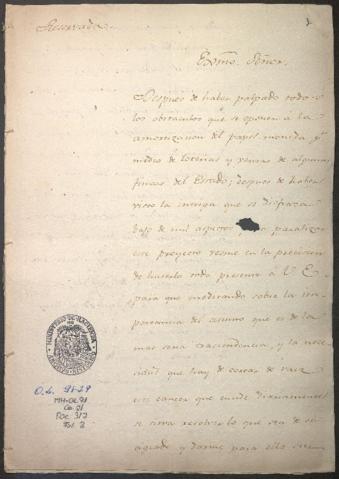 Reservada
Exmo. Señor.
Despues de haber palpado todos
los obstaculos que se oponen á la
amortizacion del papel moneda pr.
medio de loterias y ventas de algunas
fincas del Estado; despues de haber
visto la intriga que se disfraza
bajo de mil aspectos para paralizar
este proyecto me en la precision
de hacerlo todo presente á V. E.
para que meditando sobre la im-
portancia del asunto que es de la
mas seria trascendencia, y la nece-
cidad que hay de cortar de raiz
este cancer que cunde diariamente
se sirva resolver lo que sea de su
agrado y darme para ello
MINISTERIO DE HACIENDA
O.L. 91-29
MH-OL 91
Ca. 21
Doc 312
Fol. 2